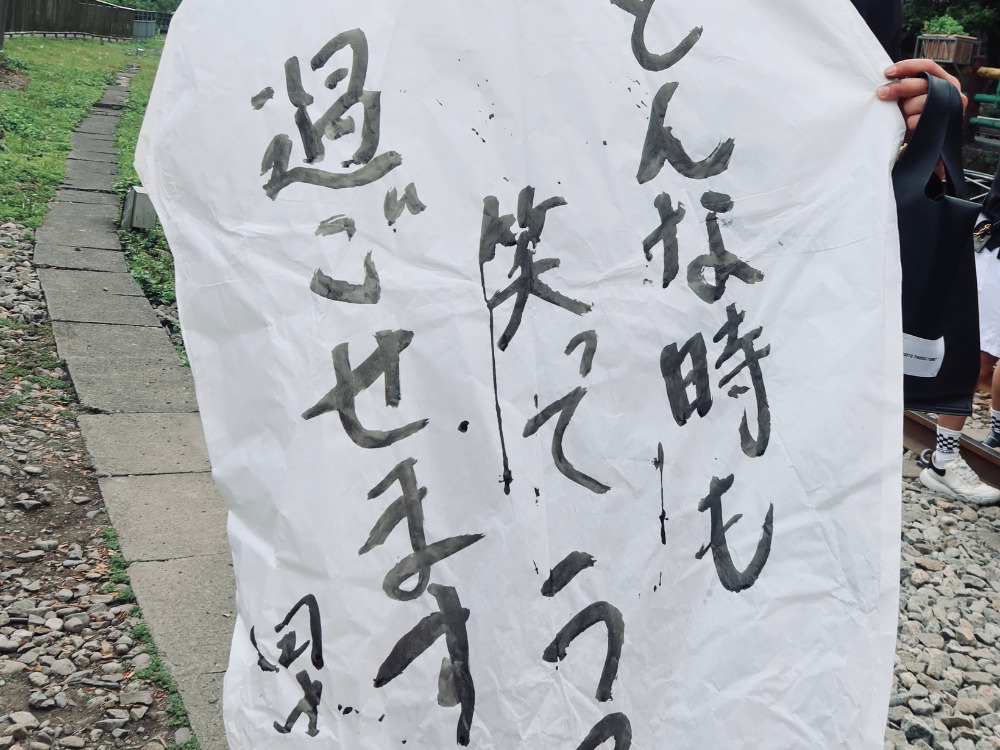 どんな時も
笑ってう
過ごせます